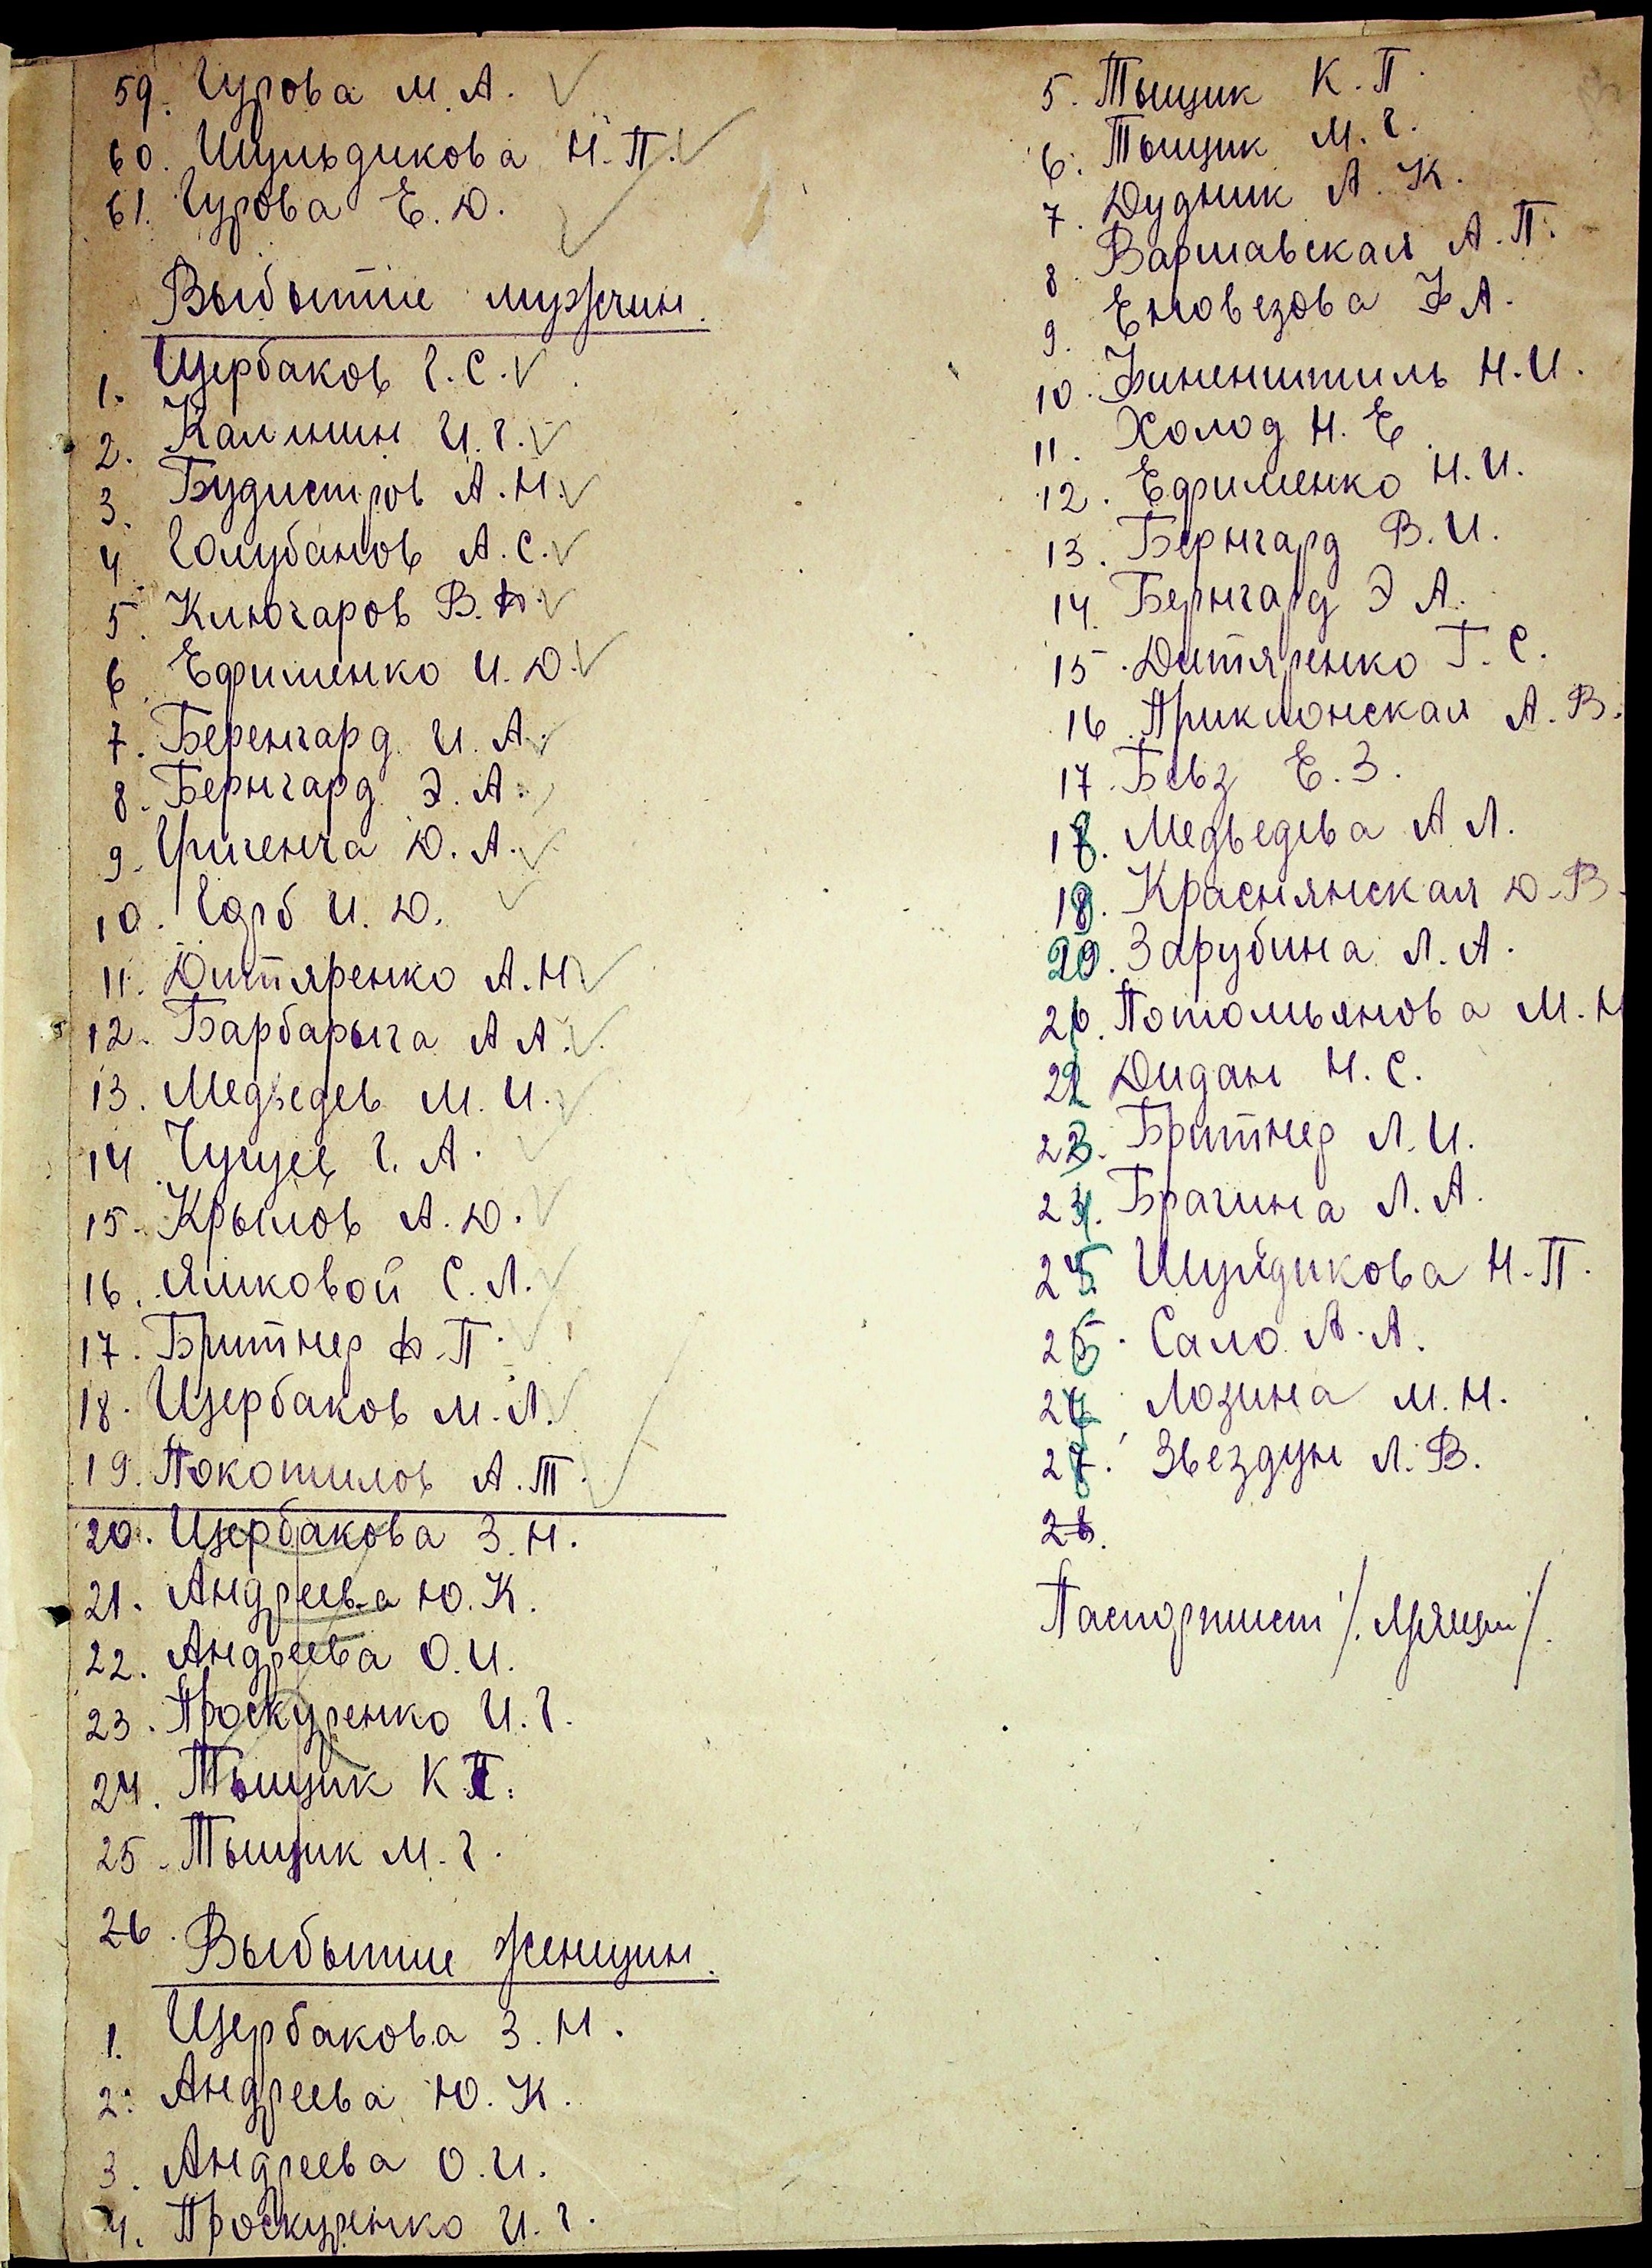 59. Гурова М.А.
60. Шульдикова Н.П.
61. Гурова Е.Д.
Выбытие мужчин.
1. Щербаков Г.С.
2. Калинин И.Г.
3. Будистров А.Н.
4 Голубанов А.С.
5. Ключаров В.Ф.
6 Ефименко И.Д.
7. Беренгард И.А.
8. Бернгард Э.А.
9. Цигенча Д.А.
10. Гарб И.Д.
11. Дитяренко А.Н
12. Барбарыга А А.
13. Медведев М.И.
14 Чущев Г.А.
15. Крылов А.Д.
16. Ямковой С.Л.
17. Бритнер Ф.П.
18. Щербаков М.Л.
19. Покотилов А.Т.
20. Щербакова З.Н.
21. Андреева Ю.К.
22. Андреева О.И.
23. Проскуренко И.Г.
24. Тыщик К.П.
25. Тыщик М.Г.
26.
Выбытие женщин.
1. Щербакова З.Н.
2. Андреева Ю.К.
3. Андреева О.И.
4. Проскуренко И.Г.
5. Тыщик К.П.
6. Тыщик М.Г.
7. Дудник А.К.
8. Варшавская А.П.
9. Еновезова Ф А.
10. Финенштиль Н.И.
11. Холод Н.Е.
12. Ефименко Н.И.
13. Бернгард В.И.
14. Бернгард Э А.
15. Дитяренко Т.С.
16. Приклонская А.В.
17. Бевз Е.З.
18. Медведева А Л.
19. Краснянская Д.В.
20. Зарубина Л.А.
21. Потомьянова М.Н
22 Дидан Н.С.
23. Бритнер Л.И.
24. Брагина Л.А.
25 Шульдикова Н.П.
26. Сало А.А.
27 Лозина М.Н.
28. Звездун Л.В.
28.
Паспортист